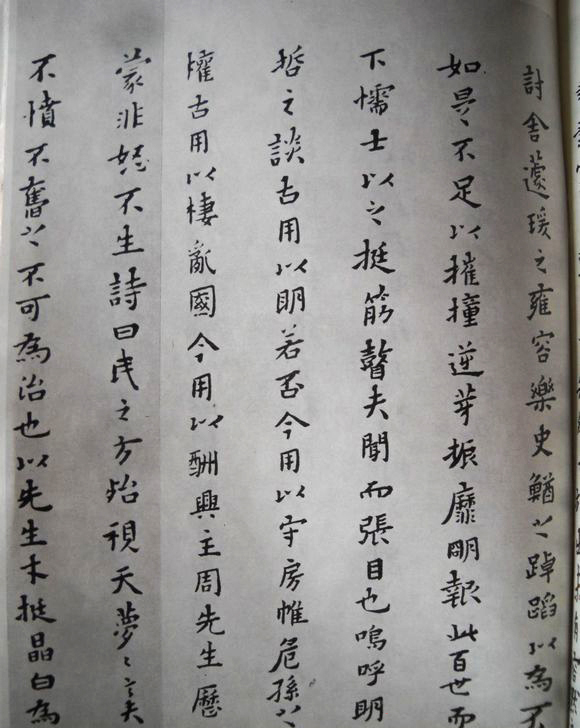 討舍蘧瑗之雍容樂史鰌之踔蹈以為不
如是不足以摧撞逆芽振靡明報此百世而
下懦士以之挺筋瞽夫聞而張目也嗚呼明
哲之談古用以明若否今用以守房帷危孫之
權古用以棲亂國今用以酬興主周先生歷
蒙非 不生詩曰民之方殆視天夢夢
不憤不奮之不可為治也以先生木挺晶白為